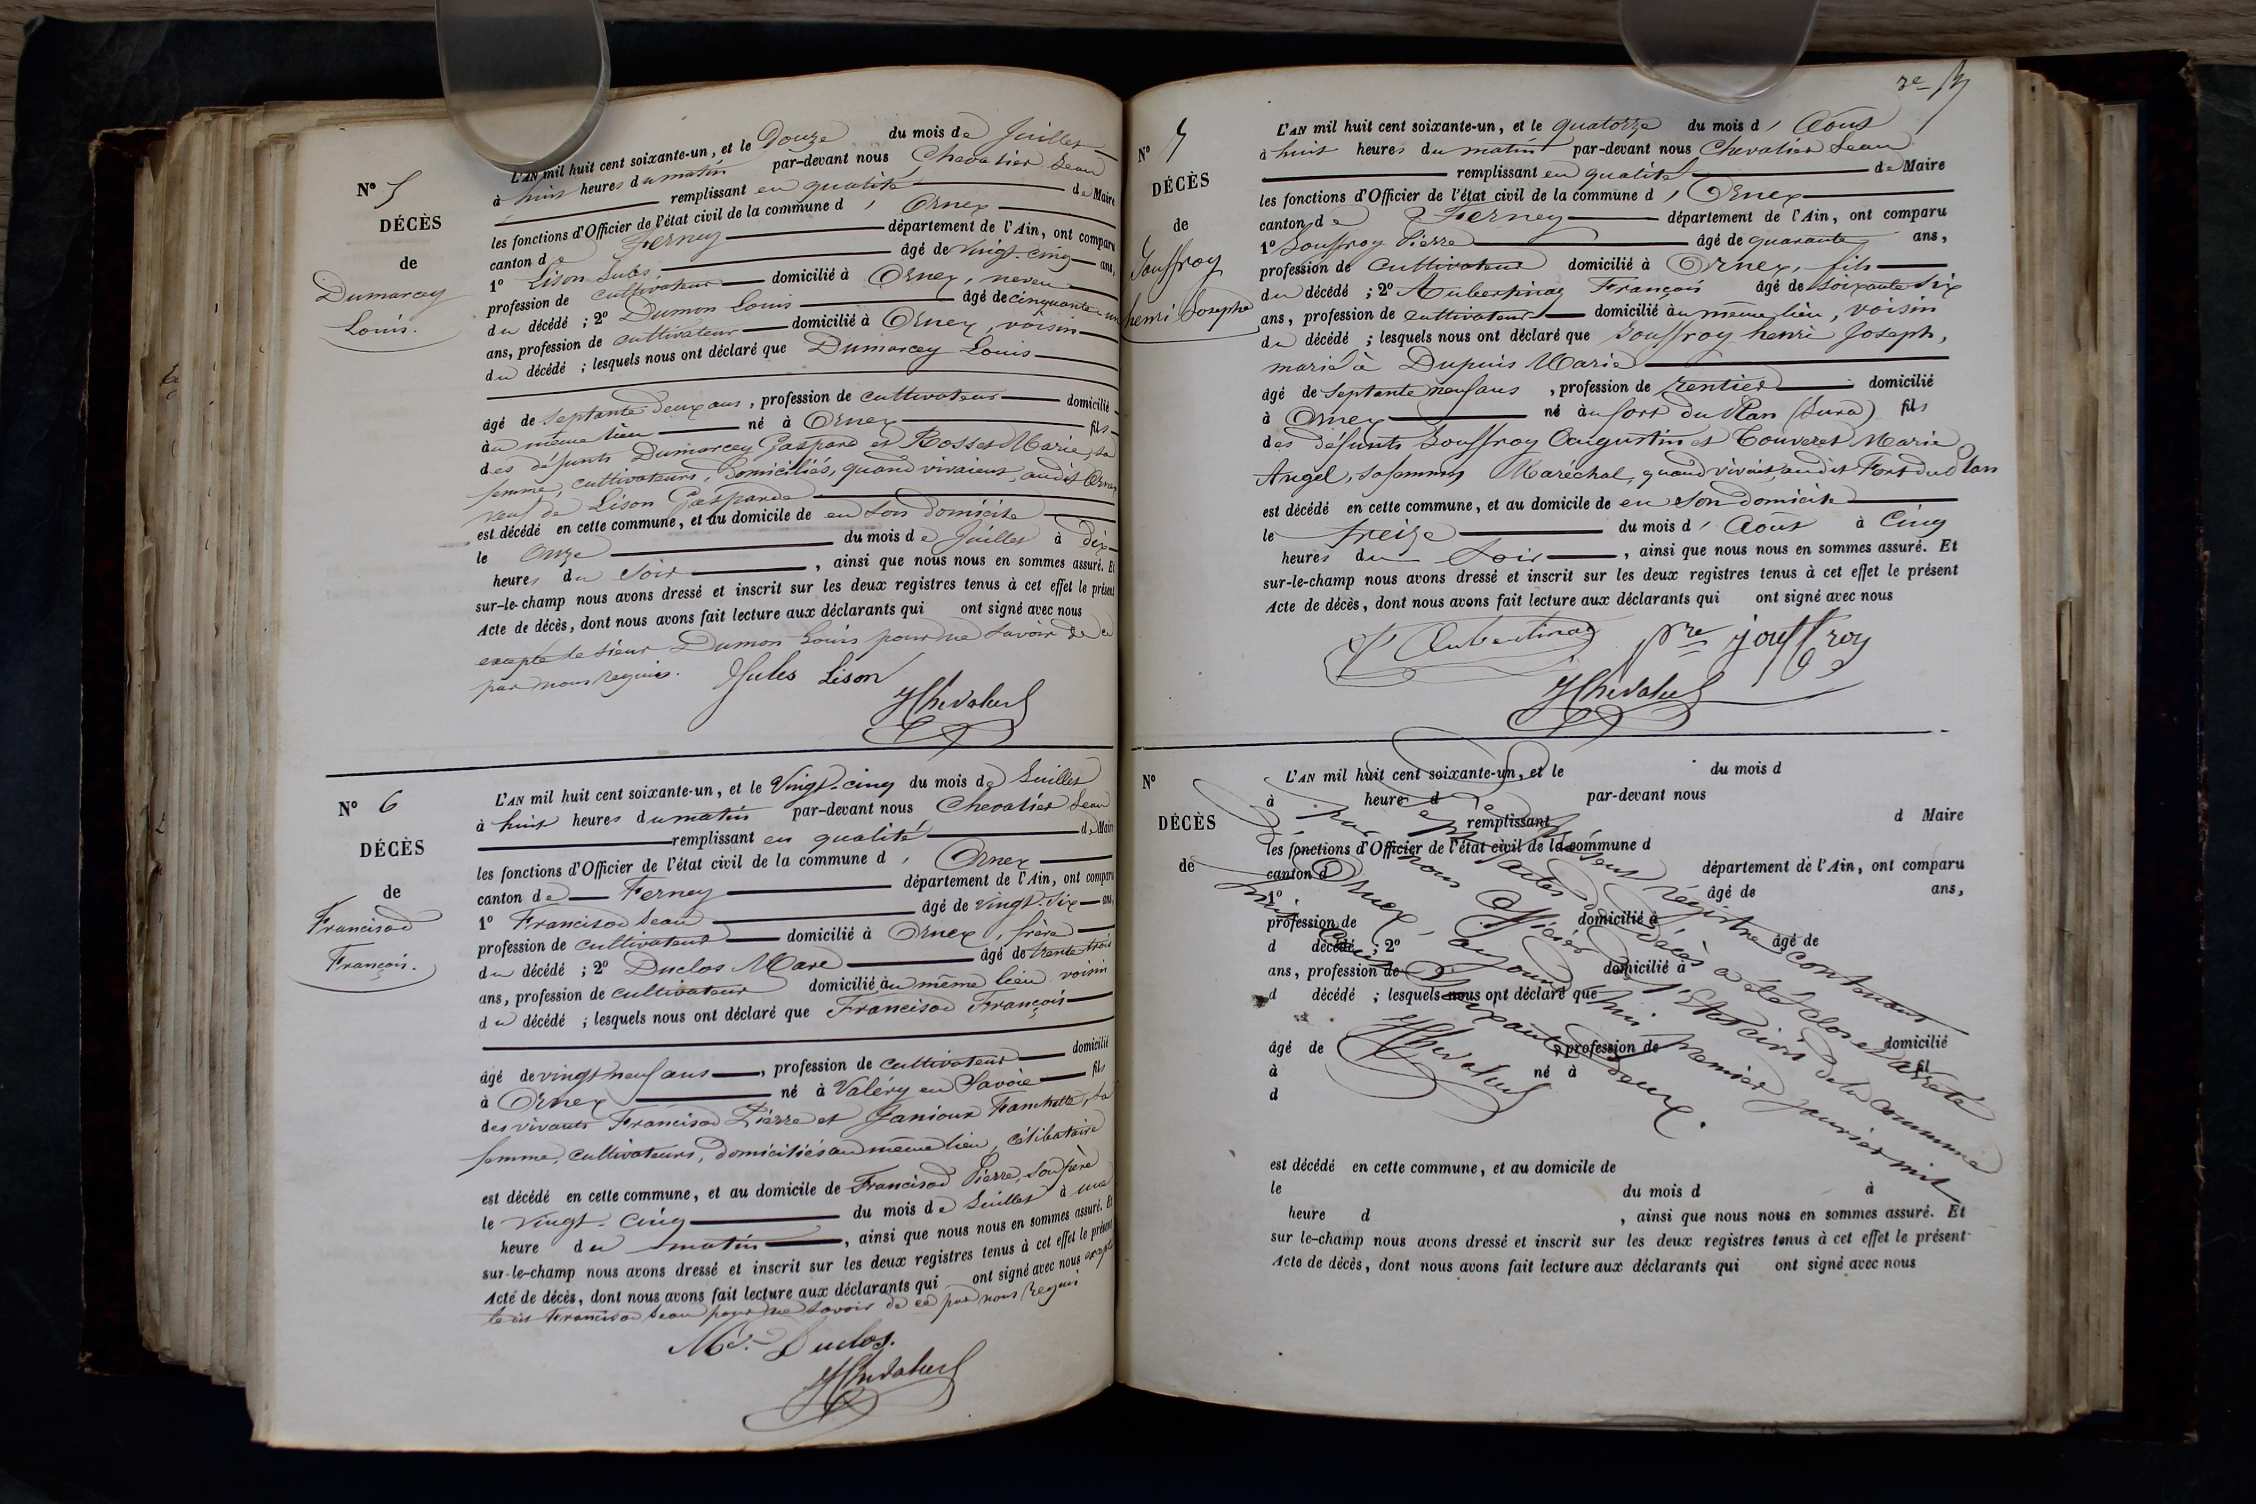 N° 5
DÉCÈS
de
Dumarcey
Louis.
L'AN mil huit cent soixante-un, et le Douze du mois de Juillet
à huit heures du matin par-devant nous Chevalier Jean
remplissant en qualité de Maire
les fonctions d'Officier de l'état civil de la commune d' Ornex
canton de Ferney département de l'Ain, ont comparu
1° Lison Jules, âgé de vingt-cinq ans,
profession de cultivateur domicilié à Ornex, neveu
du décédé ; 2° Dumon Louis âgé de cinquante un
ans, profession de cultivateur domicilié à Ornex, voisin
du décédé ; lesquels nous ont déclaré que Dumarcey Louis
âgé de septante deux ans, profession de cultivateur domicilié
au même lieu né à Ornex fils
des défunts Dumarcey Gaspard et Rosset Marie, sa
femme, cultivateurs, domiciliés, quand vivaient, audit Ornex
veuf de Lison Gasparde
est décédé en cette commune, et au domicile de en son domicile
le Onze du mois de Juillet à dix
heures du soir, ainsi que nous nous en sommes assuré. Et
sur-le-champ nous avons dressé et inscrit sur les deux registres tenus à cet effet le présent
Acte de décès, dont nous avons fait lecture aux déclarants qui ont signé avec nous
excepté le sieur Dumon Louis pour ne savoir de ce
par nous requis. Jules Lison
JChevalier
N° 6
DÉCÈS
de
Francisod
François.
L'AN mil huit cent soixante-un, et le Vingt-cinq du mois de Juillet
à huit heures du matin par-devant nous Chevalier Jean
remplissant en qualité de Maire
les fonctions d'Officier de l'état civil de la commune d' Ornex
canton de Ferney département de l'Ain, ont comparu
1° Francisod Jean âgé de vingt-six ans,
profession de cultivateur domicilié à Ornex, frère
du décédé ; 2° Duclos Marc âgé de trente trois
ans, profession de cultivateur domicilié au même lieu voisin
du décédé ; lesquels nous ont déclaré que Francisod François
âgé de vingt neuf ans, profession de cultivateur domicilié
à Ornex né à Valéry en Savoie fils
des vivants Francisod Pierre et Janioux Franchette, sa
femme, cultivateurs, domiciliés au même lieu, célibataire
est décédé en cette commune, et au domicile de Francisod Pierre, son père
le vingt-cinq du mois de Juillet à une
heure du matin, ainsi que nous nous en sommes assuré. Et
sur-le-champ nous avons dressé et inscrit sur les deux registres tenus à cet effet le présent
Acte de décès, dont nous avons fait lecture aux déclarants qui ont signé avec nous excepté
le dit Francisod Jean pour ne savoir de ce par nous requis
Mc. Duclos.
JChevalier
N° 7
DÉCÈS
de
Jouffroy
henri Josephe
L'AN mil huit cent soixante-un, et le quatorze du mois d' Août
à huit heures du matin par-devant nous Chevalier Jean
remplissant en qualité de Maire
les fonctions d'Officier de l'état civil de la commune d' Ornex
canton de Ferney département de l'Ain, ont comparu
1° Jouffroy Pierre âgé de quarante ans,
profession de cultivateur domicilié à Ornex, fils
du décédé ; 2° Aubertinaz François âgé de soixante six
ans, profession de cultivateur domicilié au même lieu, voisin
du décédé ; lesquels nous ont déclaré que Jouffroy henri Joseph,
marié à Dupuis Marie
âgé de septante neuf ans, profession de rentier domicilié
à Ornex né au fort du Plan (Jura) fils
des défunts Jouffroy Augustin et Touveret Marie
Angel, sa femme, Maréchal, quand vivait, au dit Fort du Plan
est décédé en cette commune, et au domicile de en son domicile
le treize du mois d' Août à Cinq
heures du Soir, ainsi que nous nous en sommes assuré. Et
sur-le-champ nous avons dressé et inscrit sur les deux registres tenus à cet effet le présent
Acte de décès, dont nous avons fait lecture aux déclarants qui ont signé avec nous
F Aubertinaz Pre jouffroy
JChevalier
N°
DÉCÈS
de
L'AN mil huit cent soixante-un, et le du mois d
à heure d par-devant nous
remplissant d Maire
les fonctions d'Officier de l'état civil de la commune d
canton d département de l'Ain, ont comparu
1° âgé de ans,
profession de domicilié à
d décédé ; 2° âgé de
ans, profession de domicilié à
d décédé ; lesquels nous ont déclaré que
âgé de , profession de domicilié
à né à fil
d
est décédé en cette commune, et au domicile de
le du mois d à
heure d , ainsi que nous nous en sommes assuré. Et
sur le-champ nous avons dressé et inscrit sur les deux registres tenus à cet effet le présent
Acte de décès, dont nous avons fait lecture aux déclarants qui ont signé avec nous
Le présent régistre contenant
sept actes de décès a été clos et arrêté
par nous Officier de l'Etat civil de la commune
d'Ornex, aujourd'hui premier Janvier mil
huit cent soixante deux.
JChevalier